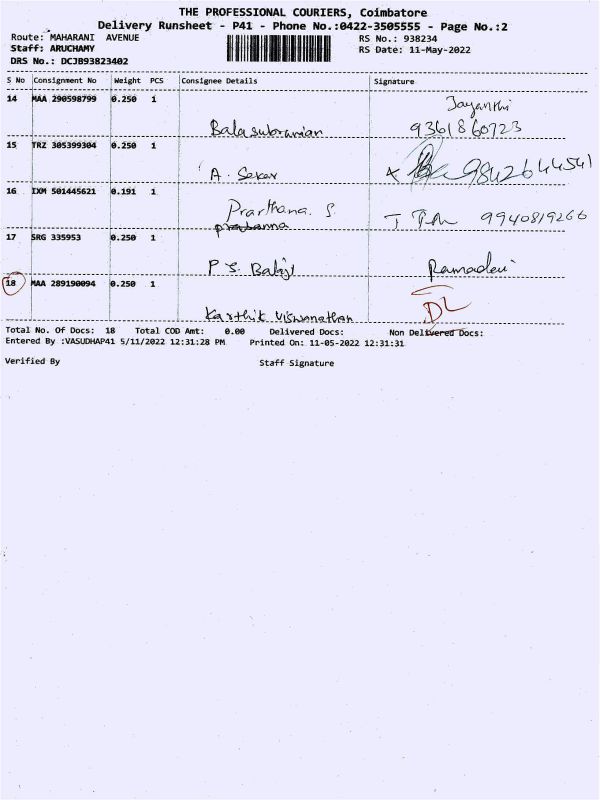 THE PROFESSIONAL COURIERS, Coimbatore
Delivery Runsheet - P41 - Phone No.:0422-3505555 - Page No.:2
Route: MAHARANI AVENUE RS No.: 938234
Staff: ARUCHAMY RS Date: 11-May-2022
DRS No.: DCJB93823402
S No Consignment No Weight PCS Consignee Details Signature
14 MAA 290598799 0.250 1 Jayanthi
Balasubramian 9361860723
15 TRZ 305399304 0.250 1
A. Sekar 9842644541
16 IXM 501445621 0.191 1
Prarthana. S. 9940819266
prasanna
17 SRG 335953 0.250 1
P S. Balaji Ramadevi
18 MAA 289190094 0.250 1
Karthik Viswanathan DL
Total No. Of Docs: 18 Total COD Amt: 0.00 Delivered Docs: Non Delivered Docs:
Entered By :VASUDHAP41 5/11/2022 12:31:28 PM Printed On: 11-05-2022 12:31:31
Verified By Staff Signature